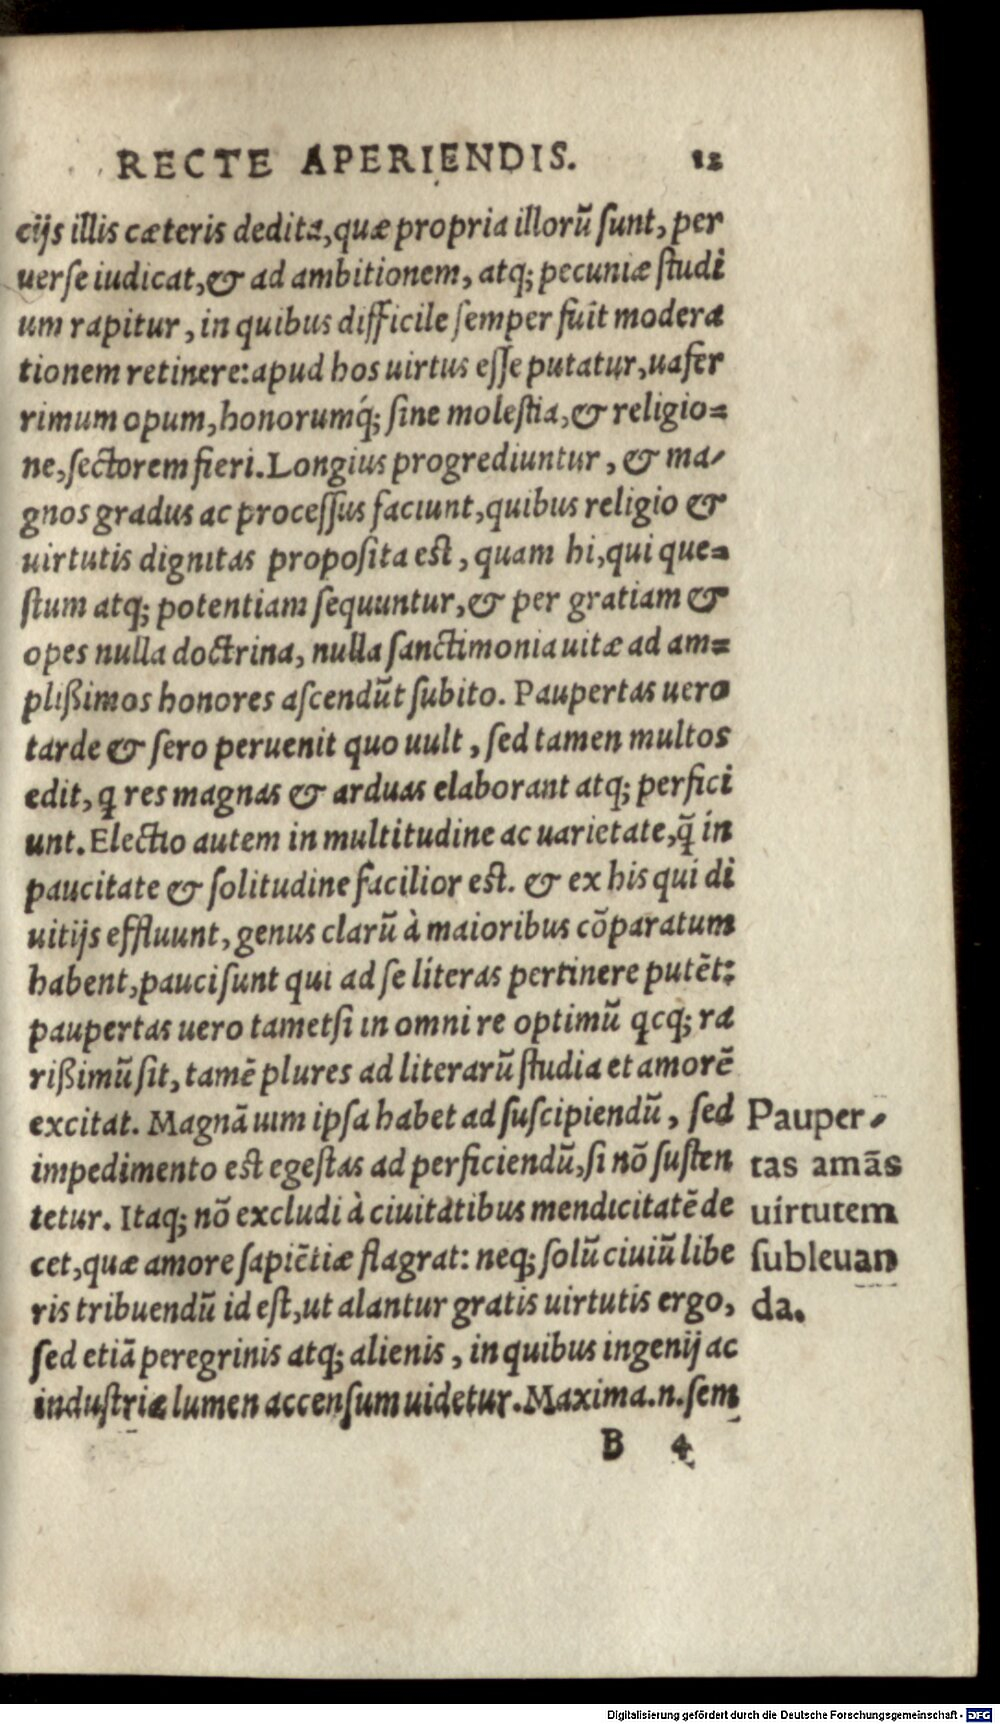 RECTE APERIENDIS. 12
cijs illis cæteris dedita, quæ propria illorū sunt, per
uerse iudicat, & ad ambitionem, atq; pecuniæ studi
um rapitur, in quibus difficile semper fuit modera
tionem retinere: apud hos uirtus esse putatur, uafer
rimum opum, honorumq́; sine molestia, & religio=
ne, sectorem fieri. Longius progrediuntur, & ma-
gnos gradus ac processus faciunt, quibus religio &
uirtutis dignitas proposita est, quam hi, qui que=
stum atq; potentiam sequuntur, & per gratiam &
opes nulla doctrina, nulla sanctimonia uitæ ad am=
plißimos honores ascendūt subito. Paupertas uero
tarde & sero peruenit quo uult, sed tamen multos
edit, q res magnas & arduas elaborant atq; perfici
unt. Electio autem in multitudine ac uarietate, q̄ in
paucitate & solitudine facilior est. & ex his qui di
uitijs effluunt, genus clarū à maioribus cōparatum
habent, pauci sunt qui ad se literas pertinere putēt:
paupertas uero tametsi in omni re optimū qcq; ra
rißimū sit, tamē plures ad literarū studia et amorē
excitat. Magnā uim ipsa habet ad suscipiendū, sed
impedimento est egestas ad perficiendū, si nō susten
tetur. Itaq; nō excludi à ciuitatibus mendicitatē de
cet, quæ amore sapiētiæ flagrat: neq; solū ciuiū libe
ris tribuendū id est, ut alantur gratis uirtutis ergo,
sed etiā peregrinis atq; alienis, in quibus ingenij ac
industriæ lumen accensum uidetur. Maxima .n. sem
Pauper-
tas amās
uirtutem
subleuan
da.
B 4
Digitalisierung gefördert durch die Deutsche Forschungsgemeinschaft - DFG